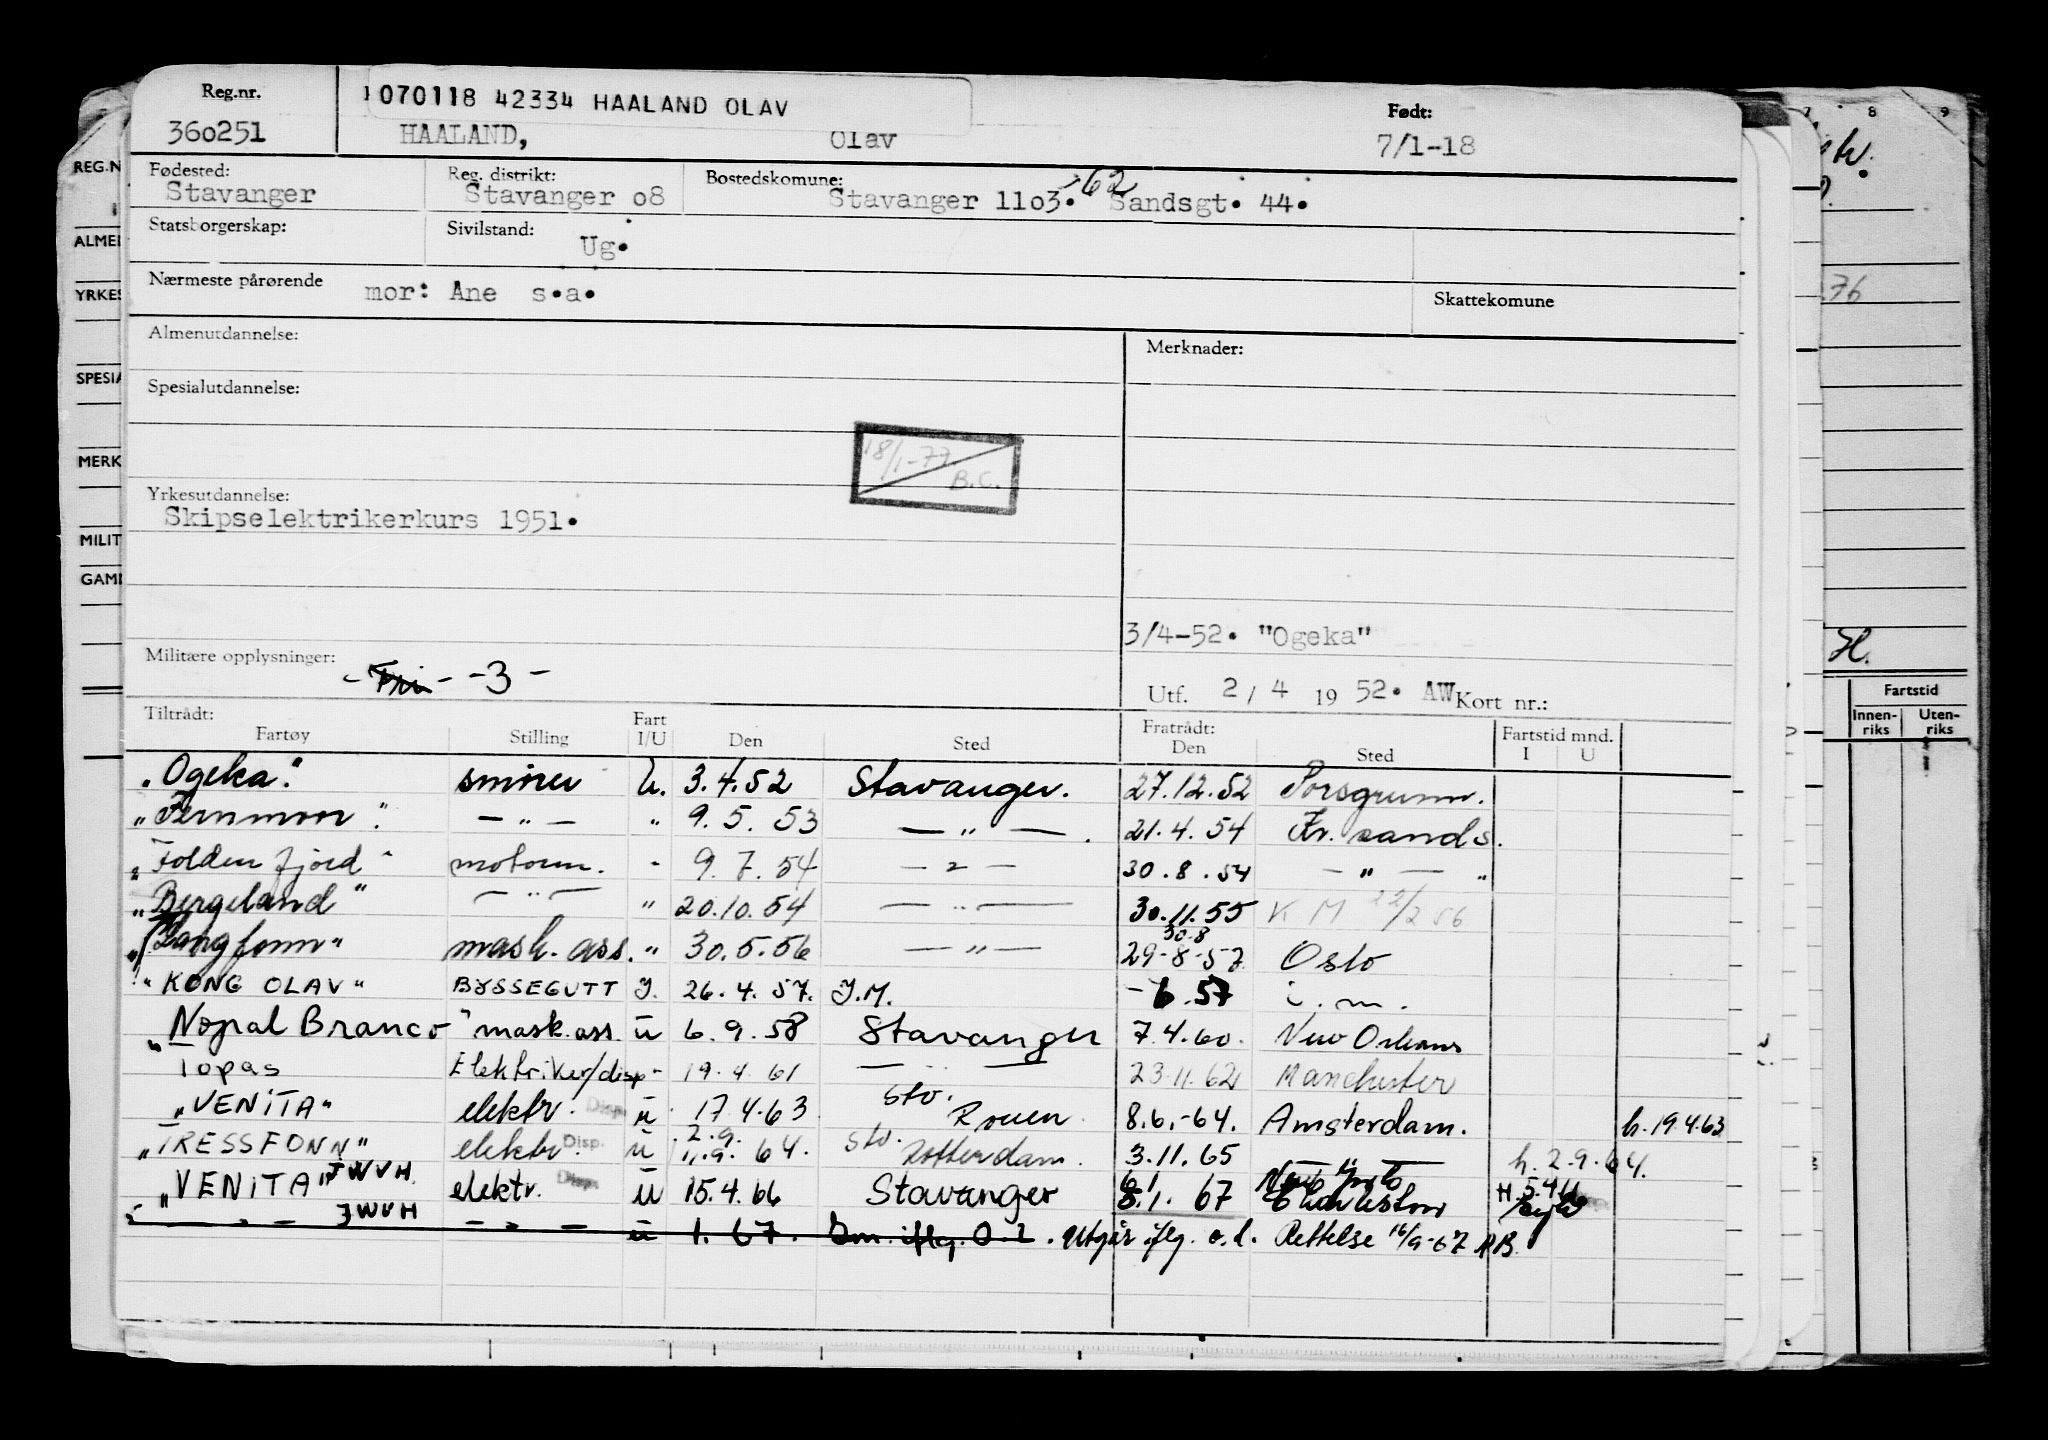 Reg.nr. 1070118 42334 HAALAND OLAV Født:
360251 HAALAND, Olav 7/1-18
Fødested: Reg. distrikt: Bostedskomune: -62
Stavanger Stavanger o8 Stavanger 11o3. Sandsgt. 44.
Statsborgerskap: Sivilstand: Ug.
Nærmeste pårørende mor: Ane s.a. Skattekomune
Almenutdannelse: Merknader:
Spesialutdannelse:
18/1-77 B.C.
Yrkesutdannelse:
Skipselektrikerkurs 1951.
3/4-52. "Ogeka"
Militære opplysninger: - Fri - -3-
Utf. 2/4 1952. AW Kort nr.:
Tiltrådt: Fratrådt: Fartstid mnd.
Fartøy Stilling Fart I/U Den Sted Den Sted I U
"Ogeka" smører u. 3.4.52 Stavanger. 27.12.52 Porsgrunn.
"Fernmoor" - " - " 9.5.53 - " - . 21.4.54 Kr. sands.
"Folden fjord" motorm. - 9.7.54 - " - 30.8.54 - " - "
"Bergeland" - " - " 20.10.54 - " - 30.11.55 K M 22/2 56
"Langfonn" mask. ass. " 30.5.56 - " - 30.8 29-8-57 Oslo
"KONG OLAV" BYSSEGUTT I. 26.4.57. I.M. -6.57 i.m.
"Nopal Branco" mask.ass. u 6.9.58 Stavanger 7.4.60. New Orleans
Topas Elektriker/disp - 19.4.61 - " - 23.11.62 Manchester
"VENITA" elektr. Disp. u 17.4.63 Stv. Rouen 8.6.-64. Amsterdam. h. 19.4.63
"TRESSFONN" elektr. Disp. u 2.9. 1.9.64. Stv. Rotterdam. 3.11.65 - " - h. 2.9.64.
"VENITA" JWVH elektr. Disp. u 15.4.66 Stavanger 6.1 8.1.67 Charleston
- " - JWVH - " - u 1.67. Om. iflg. O.l. Utgår iflg. o.l. Rettelse 16/9-67 AB.
REG.N
ALME
YRKES
SPESIA
MERK
MILIT
GAM
7 8 9
76
H.
Fartstid
Innen- Uten-
riks riks